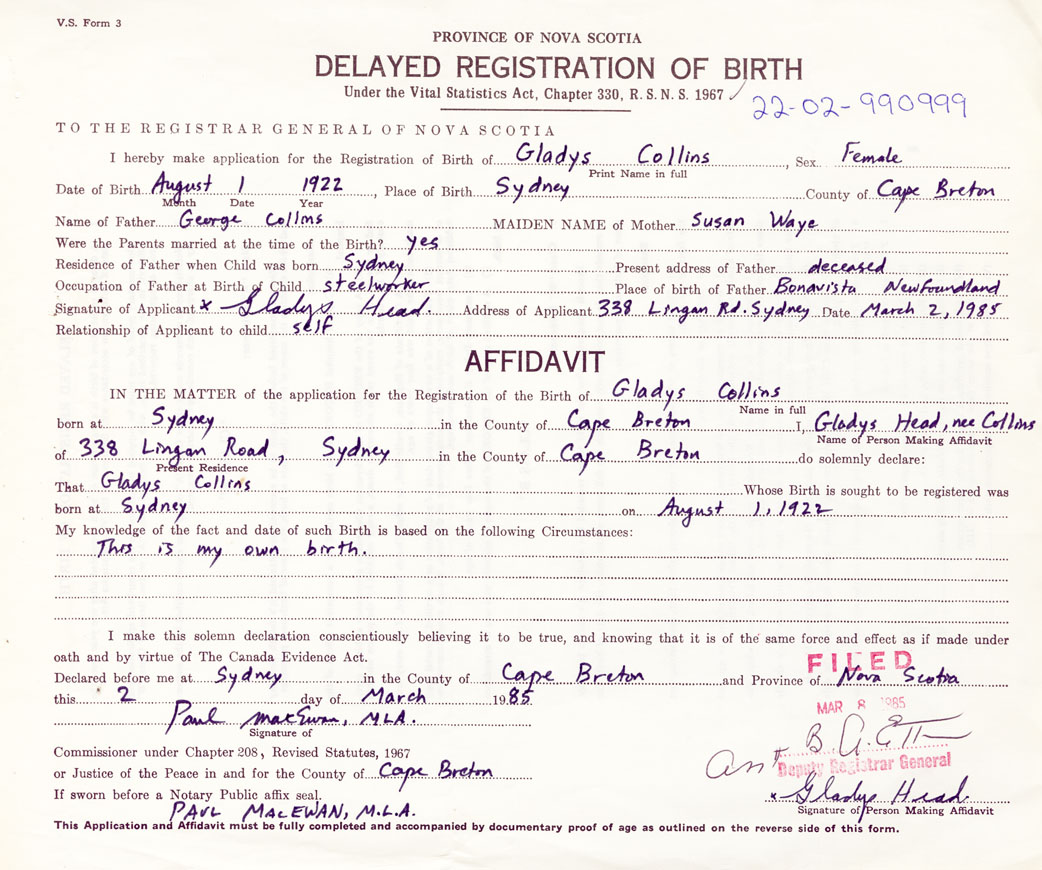 V.S. Form 3
PROVINCE OF NOVA SCOTIA
DELAYED REGISTRATION OF BIRTH
Under the Vital Statistics Act, Chapter 330, R.S.N.S. 1967
22-02-990999
TO THE REGISTRAR GENERAL OF NOVA SCOTIA
I hereby make application for the Registration of Birth of Gladys Collins, Sex Female
Print Name in full
Date of Birth August 1 1922, Place of Birth Sydney County of Cape Breton
Month Date Year
Name of Father George Collins MAIDEN NAME of Mother Susan Waye
Were the Parents married at the time of the Birth? yes
Residence of Father when Child was born Sydney Present address of Father deceased
Occupation of Father at Birth of Child steelworker Place of birth of Father Bonavista Newfoundland
Signature of Applicant x Gladys Head. Address of Applicant 338 Lingan Rd. Sydney Date March 2, 1985
Relationship of Applicant to child self
AFFIDAVIT
IN THE MATTER of the application for the Registration of the Birth of Gladys Collins
Name in full
born at Sydney in the County of Cape Breton I, Gladys Head, nee Collins
Name of Person Making Affidavit
of 338 Lingan Road, Sydney in the County of Cape Breton do solemnly declare:
Present Residence
That Gladys Collins Whose Birth is sought to be registered was
born at Sydney on August 1, 1922
My knowledge of the fact and date of such Birth is based on the following Circumstances:
This is my own birth.
I make this solemn declaration conscientiously believing it to be true, and knowing that it is of the same force and effect as if made under
oath and by virtue of The Canada Evidence Act.
FILED
Declared before me at Sydney in the County of Cape Breton and Province of Nova Scotia
this 2 day of March 1985
MAR 8 1985
Paul MacEwan, MLA.
Signature of
Commissioner under Chapter 208, Revised Statutes, 1967
Deputy Registrar General
or Justice of the Peace in and for the County of Cape Breton
x Gladys Head.
If sworn before a Notary Public affix seal.
Signature of Person Making Affidavit
PAUL MACEWAN, M.L.A.
This Application and Affidavit must be fully completed and accompanied by documentary proof of age as outlined on the reverse side of this form.